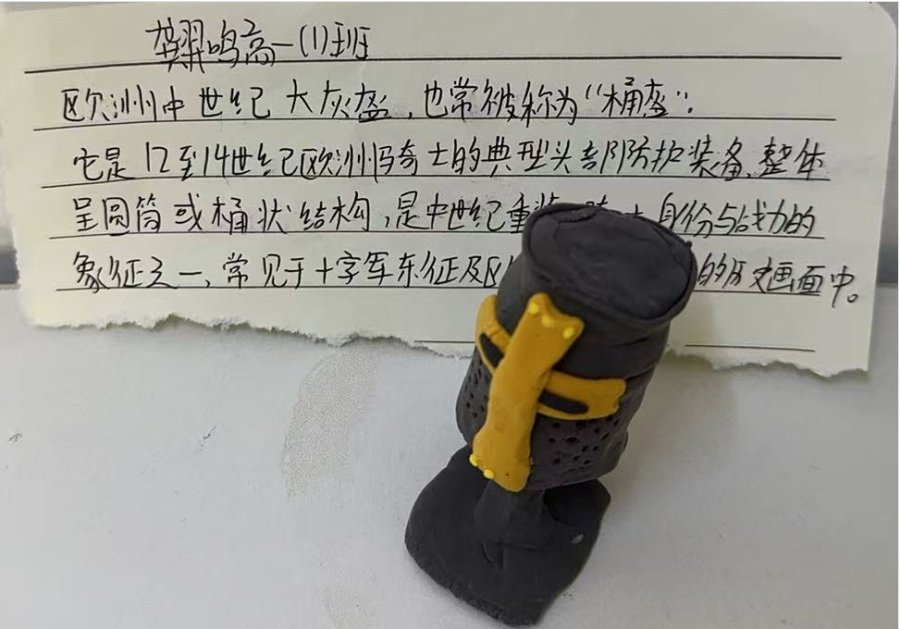 龚翊鸣高一(1)班
欧洲中世纪大灰盔,也常被称为“桶盔”.
它是12至14世纪欧洲骑士的典型头部防护装备,整体
呈圆筒或桶状结构,是中世纪重装 身份与战力的
象征之一,常见于十字军东征及 的历史画面中。